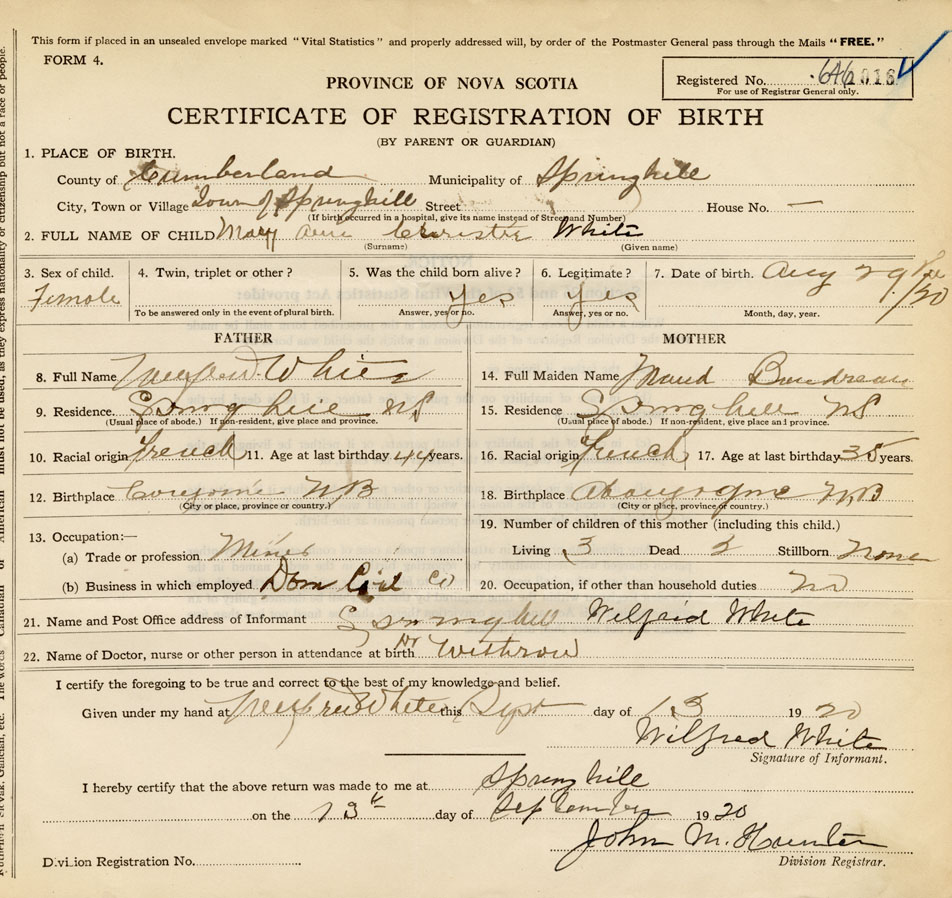 This form if placed in an unsealed envelope marked "Vital Statistics" and properly addressed will, by order of the Postmaster General pass through the Mails "FREE."
FORM 4.
Registered No. 016
For use of Registrar General only.
PROVINCE OF NOVA SCOTIA
CERTIFICATE OF REGISTRATION OF BIRTH
(BY PARENT OR GUARDIAN)
1. PLACE OF BIRTH.
County of Cumberland Municipality of Springhill
City, Town or Village Town of Springhill Street House No. —
(If birth occurred in a hospital, give its name instead of Street and Number)
2. FULL NAME OF CHILD Mary Christie White
(Surname) (Given name)
3. Sex of child. 4. Twin, triplet or other? 5. Was the child born alive? 6. Legitimate? 7. Date of birth. Aug 29
Female Yes Yes /20
To be answered only in the event of plural birth. Answer, yes or no. Answer, yes or no. Month, day, year.
FATHER MOTHER
8. Full Name White 14. Full Maiden Name Maud Boudreau
9. Residence. Springhill NS 15. Residence Springhill NS
(Usual place of abode.) If non-resident, give place and province. (Usual place of abode.) If non-resident, give place and province.
10. Racial origin French 11. Age at last birthday 44 years. 16. Racial origin French 17. Age at last birthday 35 years.
12. Birthplace NB 18. Birthplace NB
(City or place, province or country.) (City or place, province or country.)
13. Occupation:— 19. Number of children of this mother (including this child.)
(a) Trade or profession Miner Living 3 Dead Stillborn None
(b) Business in which employed Dom Co 20. Occupation, if other than household duties no
21. Name and Post Office address of Informant Springhill Wilfrid White
22. Name of Doctor, nurse or other person in attendance at birth Dr Withrow
I certify the foregoing to be true and correct to the best of my knowledge and belief.
Given under my hand at White this Sept day of 13 1920
Wilfred White
Signature of Informant.
I hereby certify that the above return was made to me at Springhill
on the 13th day of September 1920
John M. Hunter
Division Registrar.
Division Registration No.